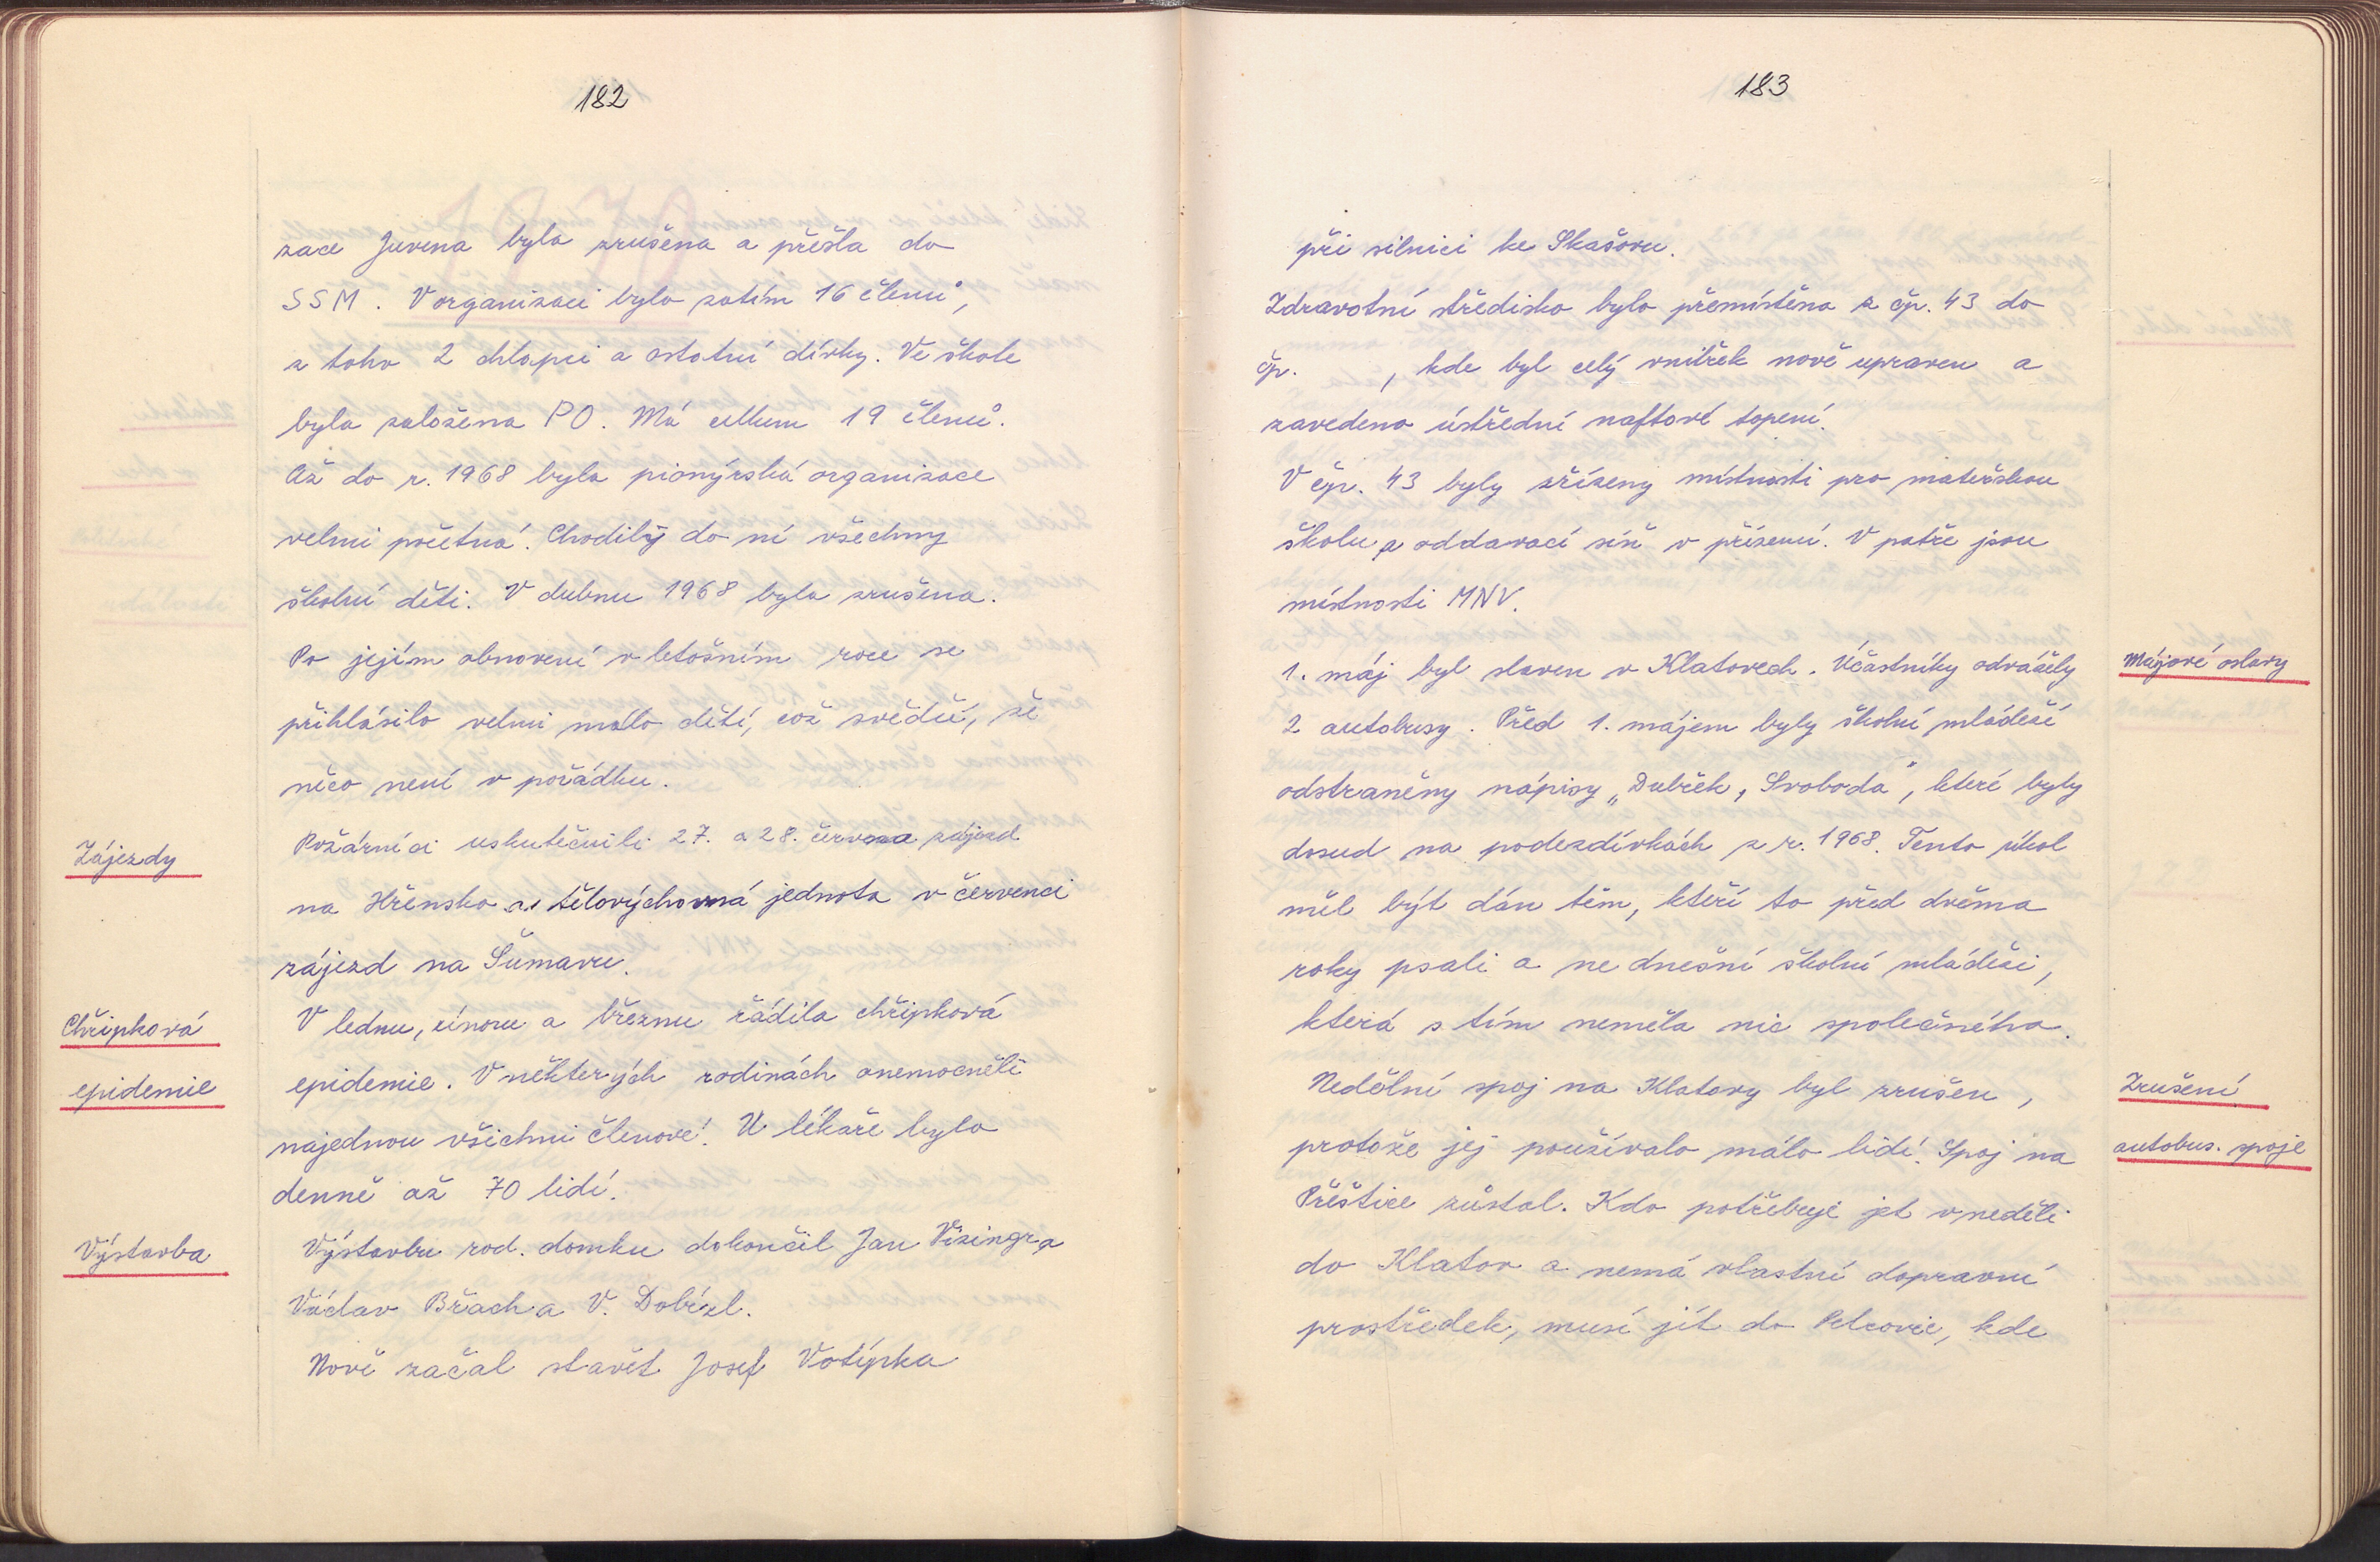 182
zace Juvena byla zrušena a přešla do
SSM. V organizaci bylo zatím 16 členů,
z toho 2 chlapci a ostatní dívky. Ve škole
byla založena PO. Má celkem 19 členů.
Až do r. 1968 byla pionýrská organizace
velmi početná. Chodily do ní všechny
školní děti. V dubnu 1968 byla zrušena.
Po jejím obnovení v letošním roce se
přihlásilo velmi málo dětí, což svědčí, že
něco není v pořádku.
Zájezdy
Požárníci uskutečnili 27. a 28. června zájezd
na Hřensko a tělovýchovná jednota v červenci
zájezd na Šumavu.
Chřipková
epidemie
V lednu, únoru a březnu řádila chřipková
epidemie. V některých rodinách onemocněli
najednou všichni členové. U lékaře bylo
denně až 70 lidí.
Výstavba
Výstavbu rod. domku dokončil Jan Vizingr a
Václav Břach a V. Dobízl.
Nově začal stavět Josef Votípka
183
při silnici ke Skašovu.
Zdravotní středisko bylo přemístěno z čp. 43 do
čp. , kde byl celý vnitřek nově upraven a
zavedeno ústřední naftové topení.
V čp. 43 byly zřízeny místnosti pro mateřskou
školu a oddavací síň v přízemí. V patře jsou
místnosti MNV.
Májové oslavy
1. máj byl slaven v Klatovech. Účastníky odvážely
2 autobusy. Před 1. májem byly školní mládeží
odstraněny nápisy „Dubček, Svoboda", které byly
dosud na podezdívkách z r. 1968. Tento úkol
měl být dán těm, kteří to před dvěma
roky psali a ne dnešní školní mládeži,
která s tím neměla nic společného.
Zrušení
autobus. spoje
Nedělní spoj na Klatovy byl zrušen,
protože jej používalo málo lidí. Spoj na
Přeštice zůstal. Kdo potřebuje jet v neděli
do Klatov a nemá vlastní dopravní
prostředek, musí jít do Petrovic, kde